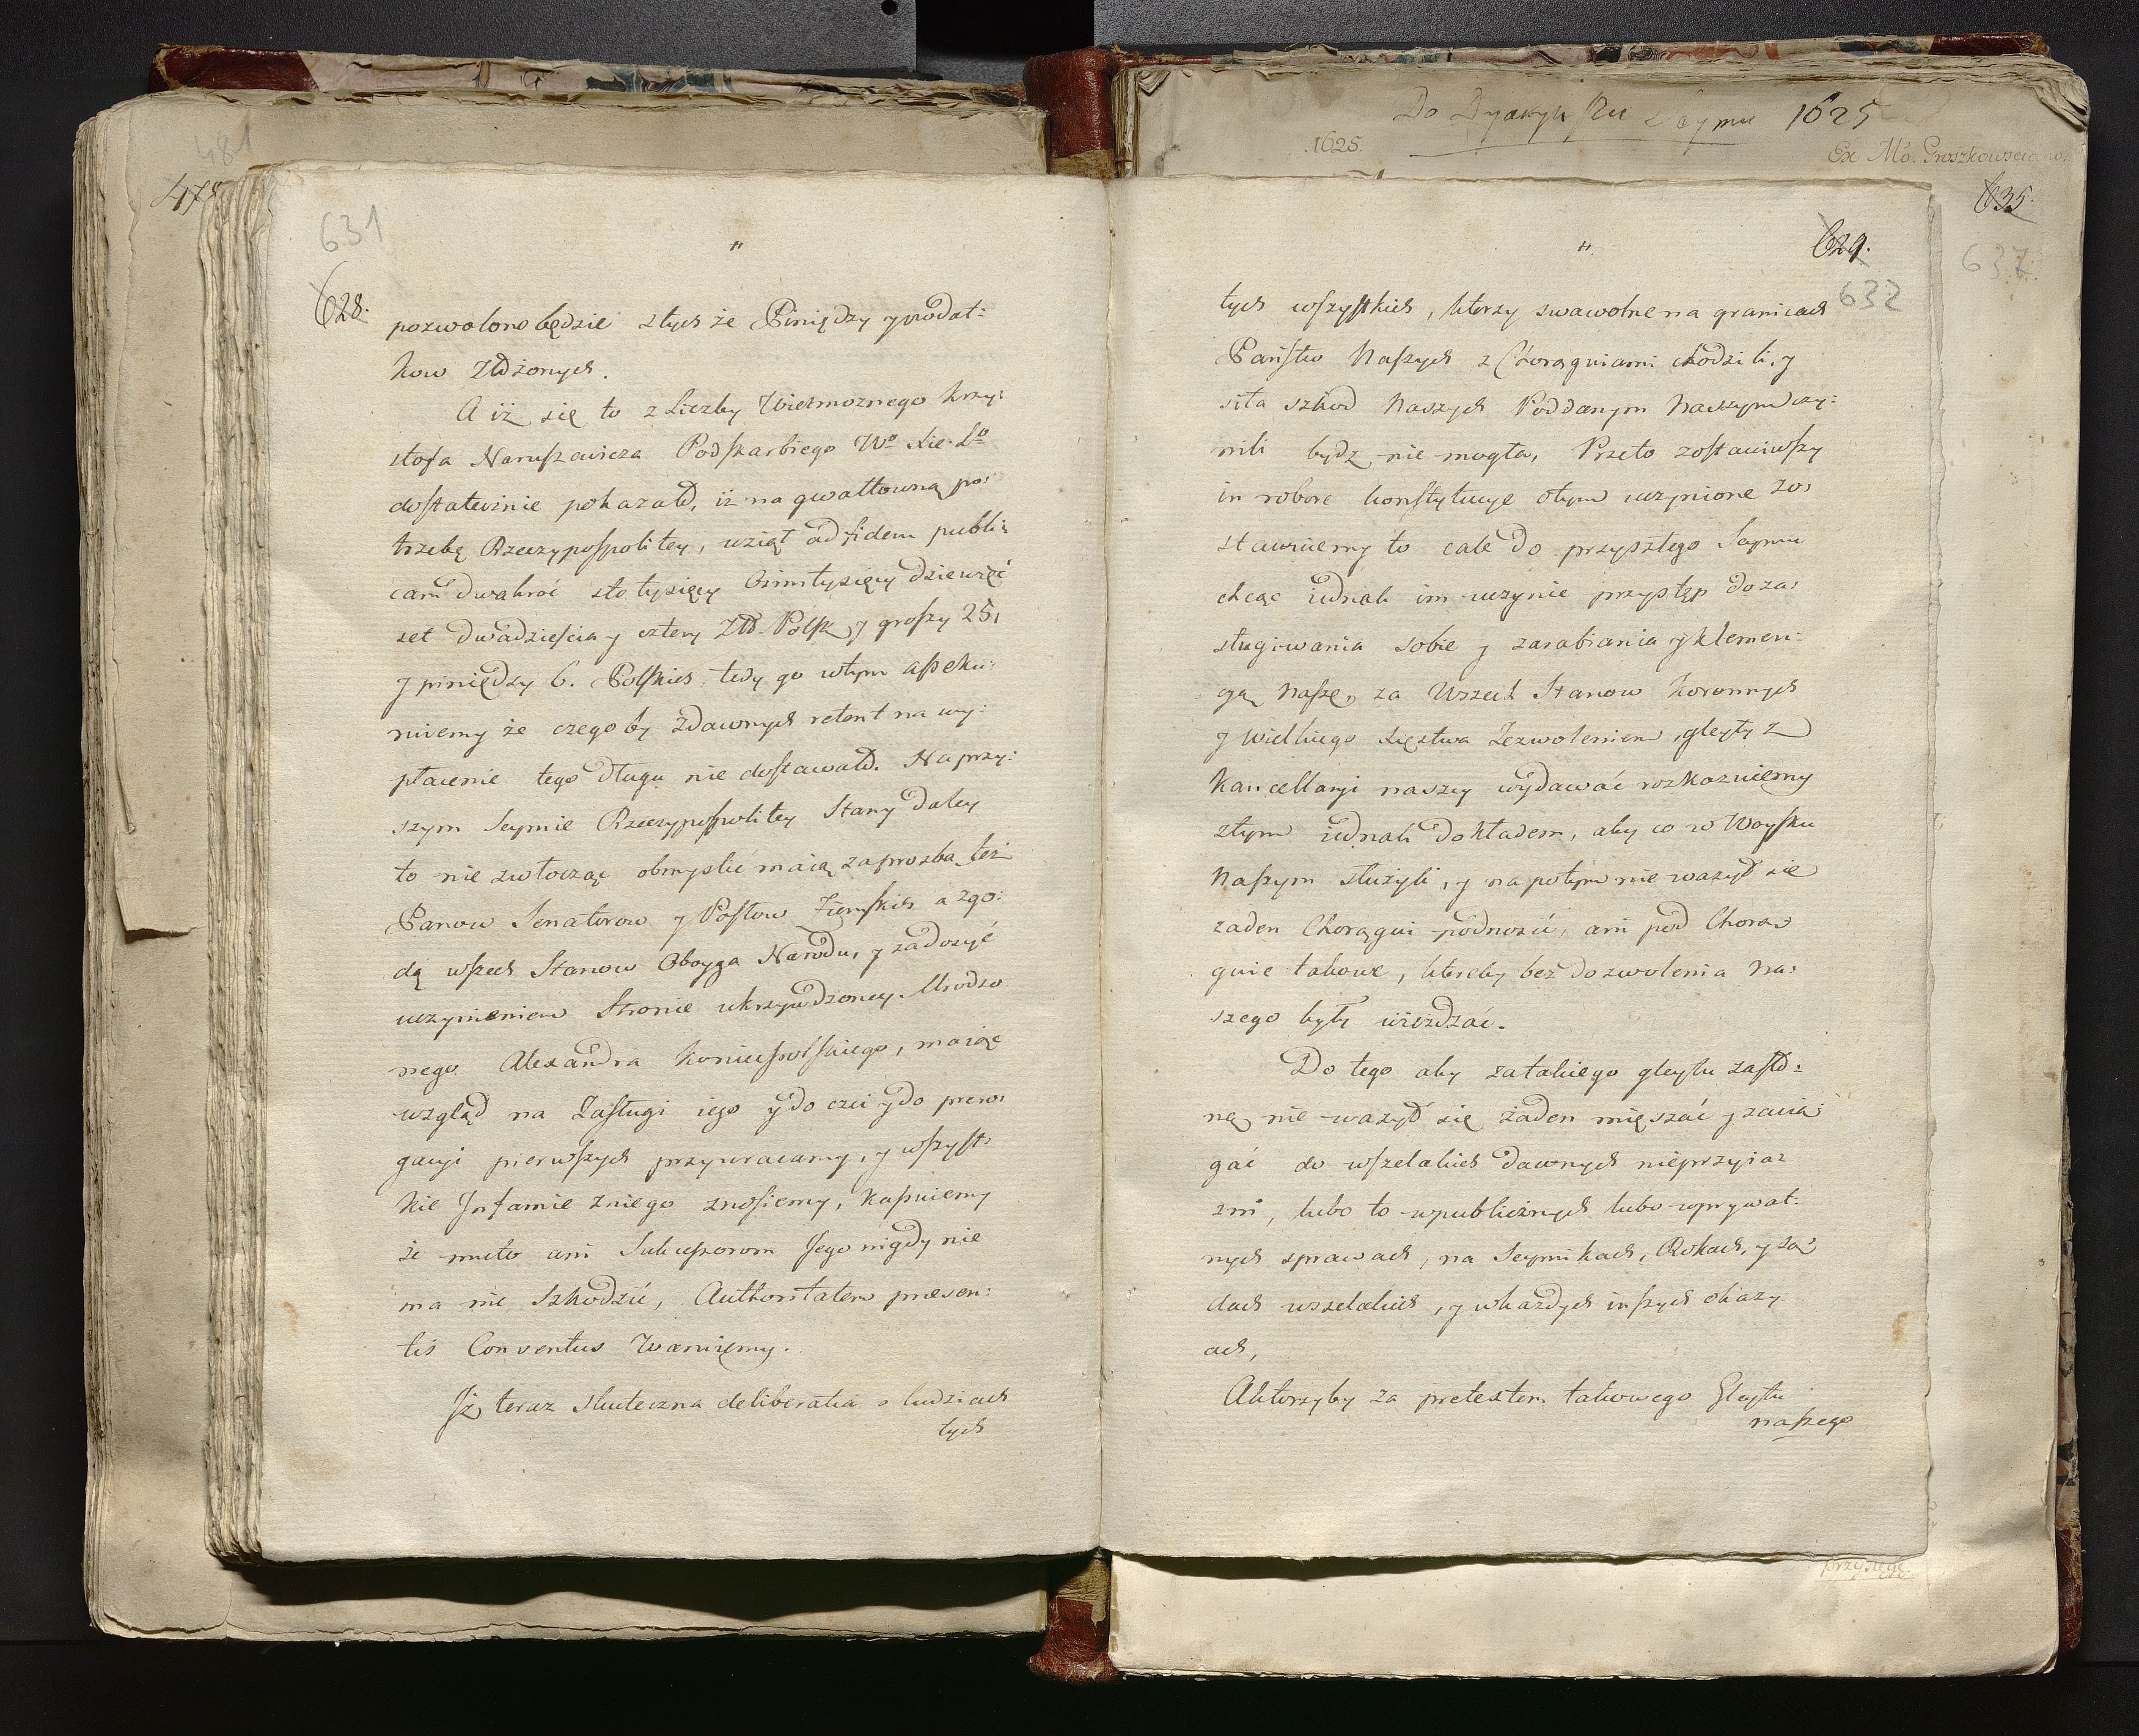 481
478
631
628.
"
pozwolono będzie z tych że Piniędzy y podat:
kow Złożonych.
A iż się to z Liczby Wielmoznego Krzy:
sztofa Naruszewicza Podskarbiego Wº Xie. Lº
dostatecznie pokazało, iż na gwałtowną po:
trzebę Rzeczypospolitey, wziął ad fidem publi:
cam dwakroć sto tysięcy Osimtysięcy dziewięć
set dwadzieścia y cztery Złł. Polsk y groszy 25,
y piniędzy 6. Polskich tedy go wtym asseku:
ruiemy że czegoby zdawnych retent na wy:
płacenie tego długu nie dostawało. Na przy:
szym Seymie Rzeczypospolitey Stany daley
to nie zwłocząc obmyslić maią za prozbą też
Panow Senatorow y Posłow Ziemskich a zgo:
dą wszech Stanow Oboyga Narodu, y zadosyć
uczynieniem Stronie ukrzywdzoney. Urodzo
nego Alexandra Koniecpolskiego, maiąc
wzgląd na Zasługi iego y do czci y do prero:
gacyi pierwszych przywracamy, y wszyst:
kie Infamie zniego znosiemy, kassuiemy
że mu to ani Sukcessorom Jego nigdy nie
ma nic Szkodzić, Authoritatem præsen:
tis Conventus Waruięmy.
Iż teraz skuteczna deliberatia o ludziach
tych
Do Seymu 1625
1625.
Ex Mo. Groszkowsciano.
635.
637.
629.
632
"
tych wszystkich, ktorzy swawolne na granicach
Państw Naszych z Chorągwiami chodzili, y
siła szkod Naszych Poddanym Naszym czy:
nili bydz nie mogła, Przeto zostawiwszy
in robore konstytucye otym uczynione zo:
stawuiemy to cale do przyszłego Seymu
chcąc iednak im uczynic przystęp do za:
sługiwania sobie y zarabiania y klemen:
cyą Naszę, za Wszech Stanow Koronnych
y Wielkiego Xięstwa Zezwoleniem, gleyty z
Kancellaryi naszey wydawać rozkazuiemy
ztym iednak dokładem, aby co w Woysku
Naszym służyli, y napotym nie ważył się
zaden Chorągwi podnosić, ani pod Chora:
gwie takowe, ktoreby bez dozwolenia Na:
szego były wieżdzać.
Do tego aby zatakiego gleytu zasło:
nę nie ważył się żaden mięszać y zacią:
gać do wszelakich dawnych nieprzyiaz
zni, lubo to wpublicznych lubo wprywat:
nych sprawach, na Seymikach, Rokach, y Są:
dach wszelakich, y wkażdych inszych okazy
ach,
A ktorzyby za pretextem takowego Gleytu
naszego
przysięgę